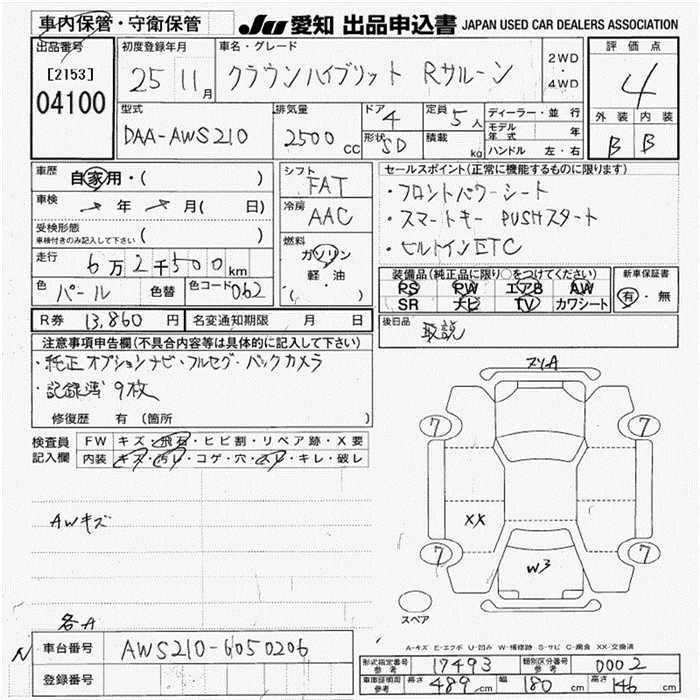 車内保管・守衛保管
JU 愛知 出品申込書 JAPAN USED CAR DEALERS ASSOCIATION
出品番号
[2153]
04100
初度登録年月
25 11月
車名・グレード
クラウンハイブリット Rサルーン
2WD
・
4WD
評価点
4
外装 内装
B B
型式
DAA-AWS210
排気量
2500 CC
ドア 4
形状 SD
定員 5人
積載 kg
ディーラー・並行
モデル年式 年
ハンドル 左・右
車歴
自家用・( )
車検
年 月( 日)
受検形態
車検付きのみ記入して下さい ( )
走行
6万2千500km
色 パール 色替 色コード 062
シフト
FAT
冷房
AAC
燃料
ガソリン
軽・油
( )
セールスポイント(正常に機能するものに限ります)
・フロントパワーシート
・スマートキー PUSHスタート
・ビルトインETC
装備品(純正品に限り○をつけてください)
PS PW エアB AW
SR ナビ TV カワシート
新車保証書
有・無
R券 13,860円 名変通知期限 月 日
後日品
取説
注意事項申告欄(不具合内容等は具体的に記入して下さい)
・純正オプションナビ・フルセグ・バックカメラ
・記録簿 9枚
修復歴 有 (箇所 )
検査員
記入欄
FW キズ・飛石・ヒビ割・リペア跡・X要
内装 キズ・汚レ・コゲ・穴・スレ・キレ・破レ
AWキズ
各A
スリA
7 7
XX
7 7
W3
スペア
A-キズ E-エクボ U-凹み W-補修跡 S-サビ C-腐食 XX-交換済
N
車台番号 AWS210-6050206
登録番号
形式指定番号 参考 17493 類別区分番号 参考 0002
車庫証明用 参考 長さ 489cm 幅 180cm 高さ 146cm